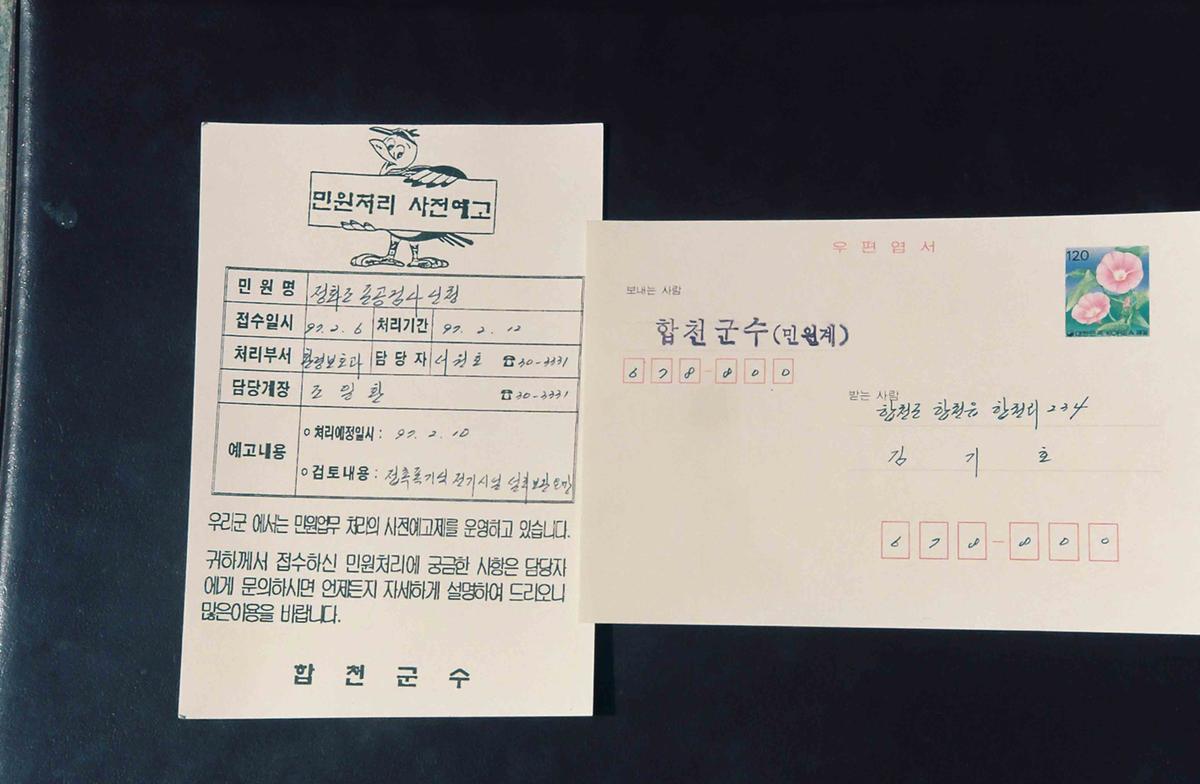 민원처리 사전예고
민 원 명 정화조 준공검사 신청
접수일시 97. 2. 6 처리기간 97. 2. 12
처리부서 환경보호과 담 당 자 서원호 ☎30-3331
담당계장 조 일 환 ☎30-3331
예고내용
○ 처리예정일시 : 97. 2. 10
○ 검토내용 : 접촉폭기식 전기시설 설치
우리군 에서는 민원업무 처리의 사전예고제를 운영하고 있습니다.
귀하께서 접수하신 민원처리에 궁금한 사항은 담당자
에게 문의하시면 언제든지 자세하게 설명하여 드리오니
많은이용을 바랍니다.
합 천 군 수
우편엽서
120
대한민국 KOREA
보내는 사람
합천군수(민원계)
678-800
받는 사람
합천군 합천읍 합천리 234
김 기 호
678-800